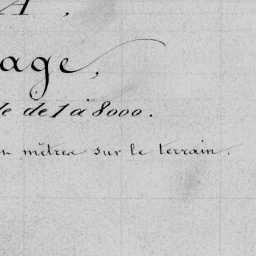 A,
age,
le de 1 à 8000.
en mètres sur le terrain.